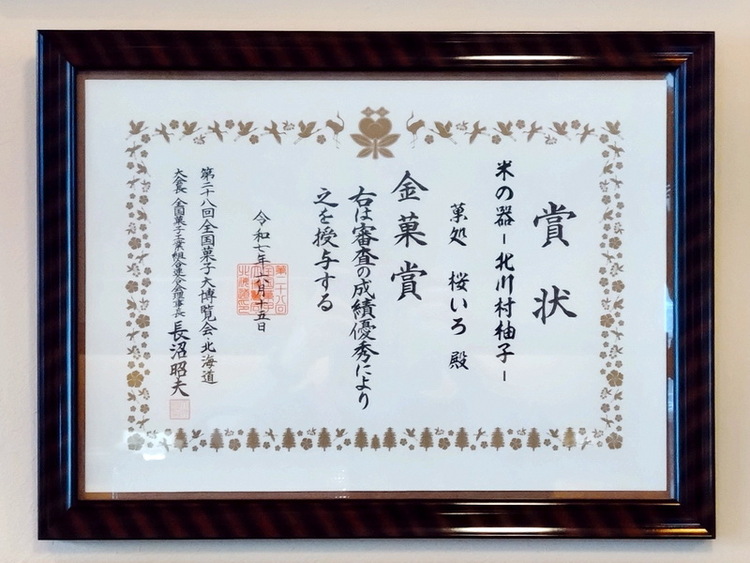 賞状
米の器-北川村柚子-
菓処 桜いろ 殿
金菓賞
右は審査の成績優秀により
之を授与する
令和七年六月十五日
第二十八回全国菓子大博覧会・北海道
大会長 全国菓子工業組合連合会理事長 長沼昭夫